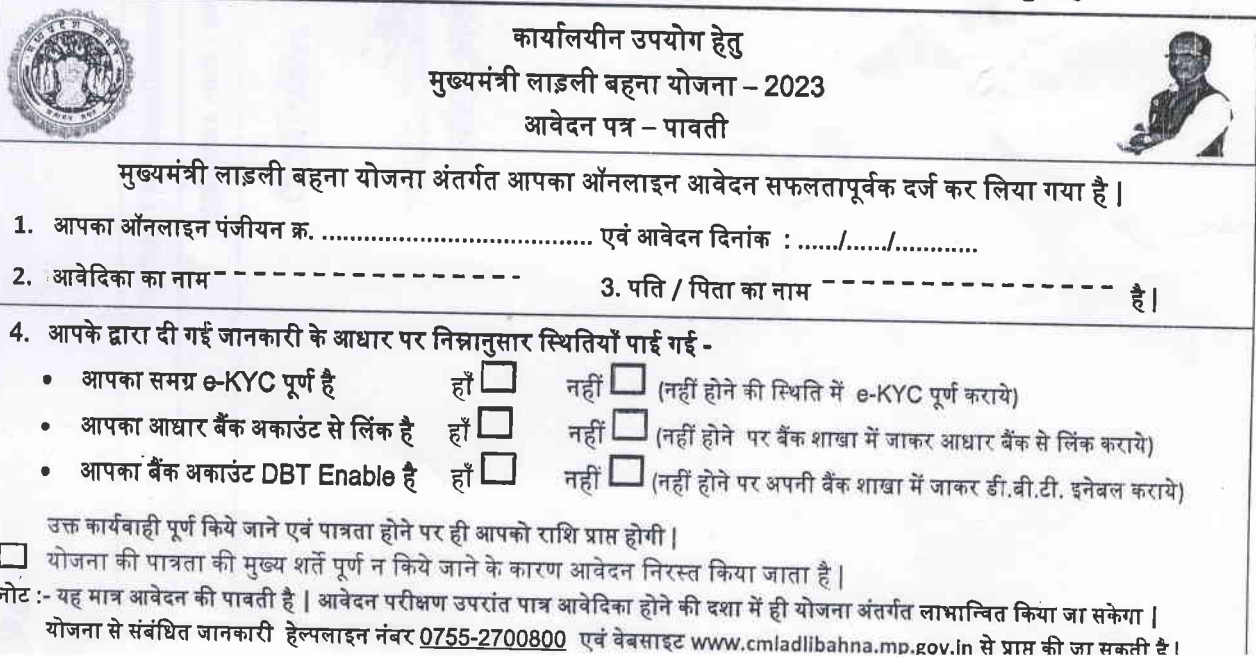 कार्यालयीन उपयोग हेतु
मुख्यमंत्री लाड़ली बहना योजना – 2023
आवेदन पत्र – पावती
मुख्यमंत्री लाड़ली बहना योजना अंतर्गत आपका ऑनलाइन आवेदन सफलतापूर्वक दर्ज कर लिया गया है |
1. आपका ऑनलाइन पंजीयन क्र. ...................................... एवं आवेदन दिनांक : ....../....../............
2. आवेदिका का नाम---------------- 3. पति / पिता का नाम --------------- है |
4. आपके द्वारा दी गई जानकारी के आधार पर निम्नानुसार स्थितियाँ पाई गई -
• आपका समग्र e-KYC पूर्ण है हाँ ☐ नहीं ☐ (नहीं होने की स्थिति में e-KYC पूर्ण कराये)
• आपका आधार बैंक अकाउंट से लिंक है हाँ ☐ नहीं ☐ (नहीं होने पर बैंक शाखा में जाकर आधार बैंक से लिंक कराये)
• आपका बैंक अकाउंट DBT Enable है हाँ ☐ नहीं ☐ (नहीं होने पर अपनी बैंक शाखा में जाकर डी.बी.टी. इनेबल कराये)
उक्त कार्यवाही पूर्ण किये जाने एवं पात्रता होने पर ही आपको राशि प्राप्त होगी |
☐ योजना की पात्रता की मुख्य शर्ते पूर्ण न किये जाने के कारण आवेदन निरस्त किया जाता है |
नोट :- यह मात्र आवेदन की पावती है | आवेदन परीक्षण उपरांत पात्र आवेदिका होने की दशा में ही योजना अंतर्गत लाभान्वित किया जा सकेगा |
योजना से संबंधित जानकारी हेल्पलाइन नंबर 0755-2700800 एवं वेबसाइट www.cmladlibahna.mp.gov.in से प्राप्त की जा सकती है |